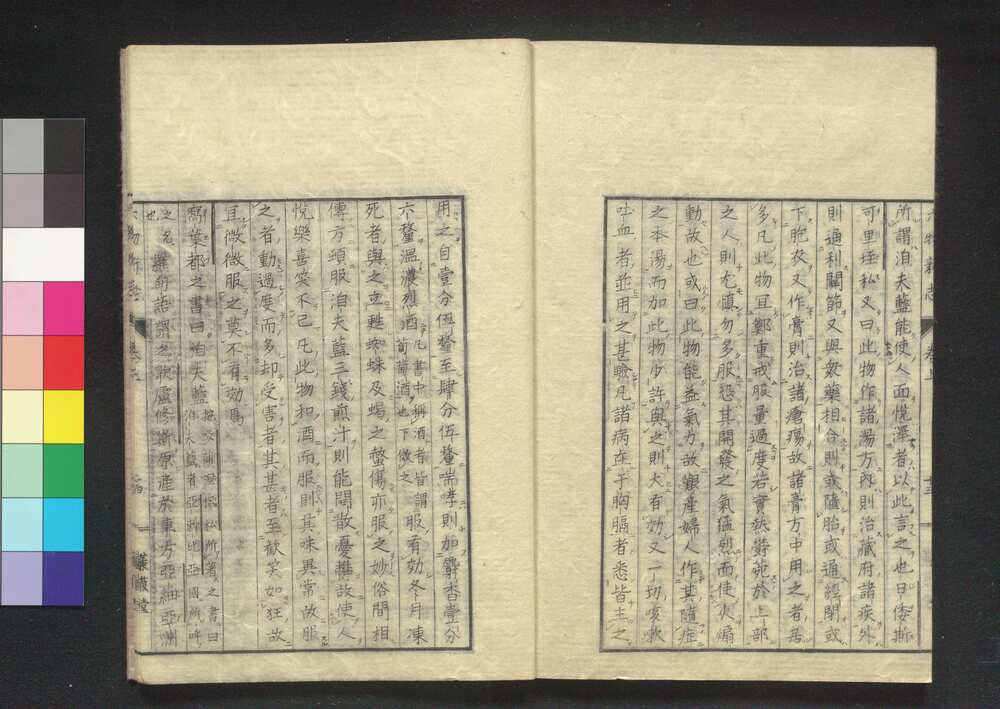 所謂泊夫藍能使人面慌澤者以此言之也曰倭斯
可里垤私又曰此物作諸湯方內則治藏府諸疾外
則通利關節又與衆藥相合則或隨胎或通經閉或
下胞衣又作膏則治諸瘡瘍故諸膏方中用之者居
多凡此物宜鄭重戒服量過度若實欝欝苑於上部
之人則尤愼勿多服恐其開發之氣猛烈而使火煽
動故也或曰此物能益氣力故艱產婦人作其隨症
之本湯而加此物少許與之則大有効又一切咳嗽
吐血者並用之甚驗凡諸病在于胸膈者悉皆主之
六物新志 卷上 十三
用之自壹分伍釐至肆分伍釐喘哮則加麝香壹分
六釐溫濃烈酒葡萄酒也下傚之凡書中稱酒者皆謂服有効冬月凍
死者與之立甦蜘蛛及蝎之螫傷亦服之妙俗間相
傳方頓服泊夫藍三錢煎汁則能開散憂欝故使人
悅樂喜笑不已凡此物和酒而服則其味異常故服
之者動過度而多却受害者其甚者至歡笑如狂故
宜微微服之莫不有効焉
寫葉都之書曰泊夫藍
私所著之書曰
之名羅甸語謂之
原產於東方亞細亞洲
也
六物新志 卷上